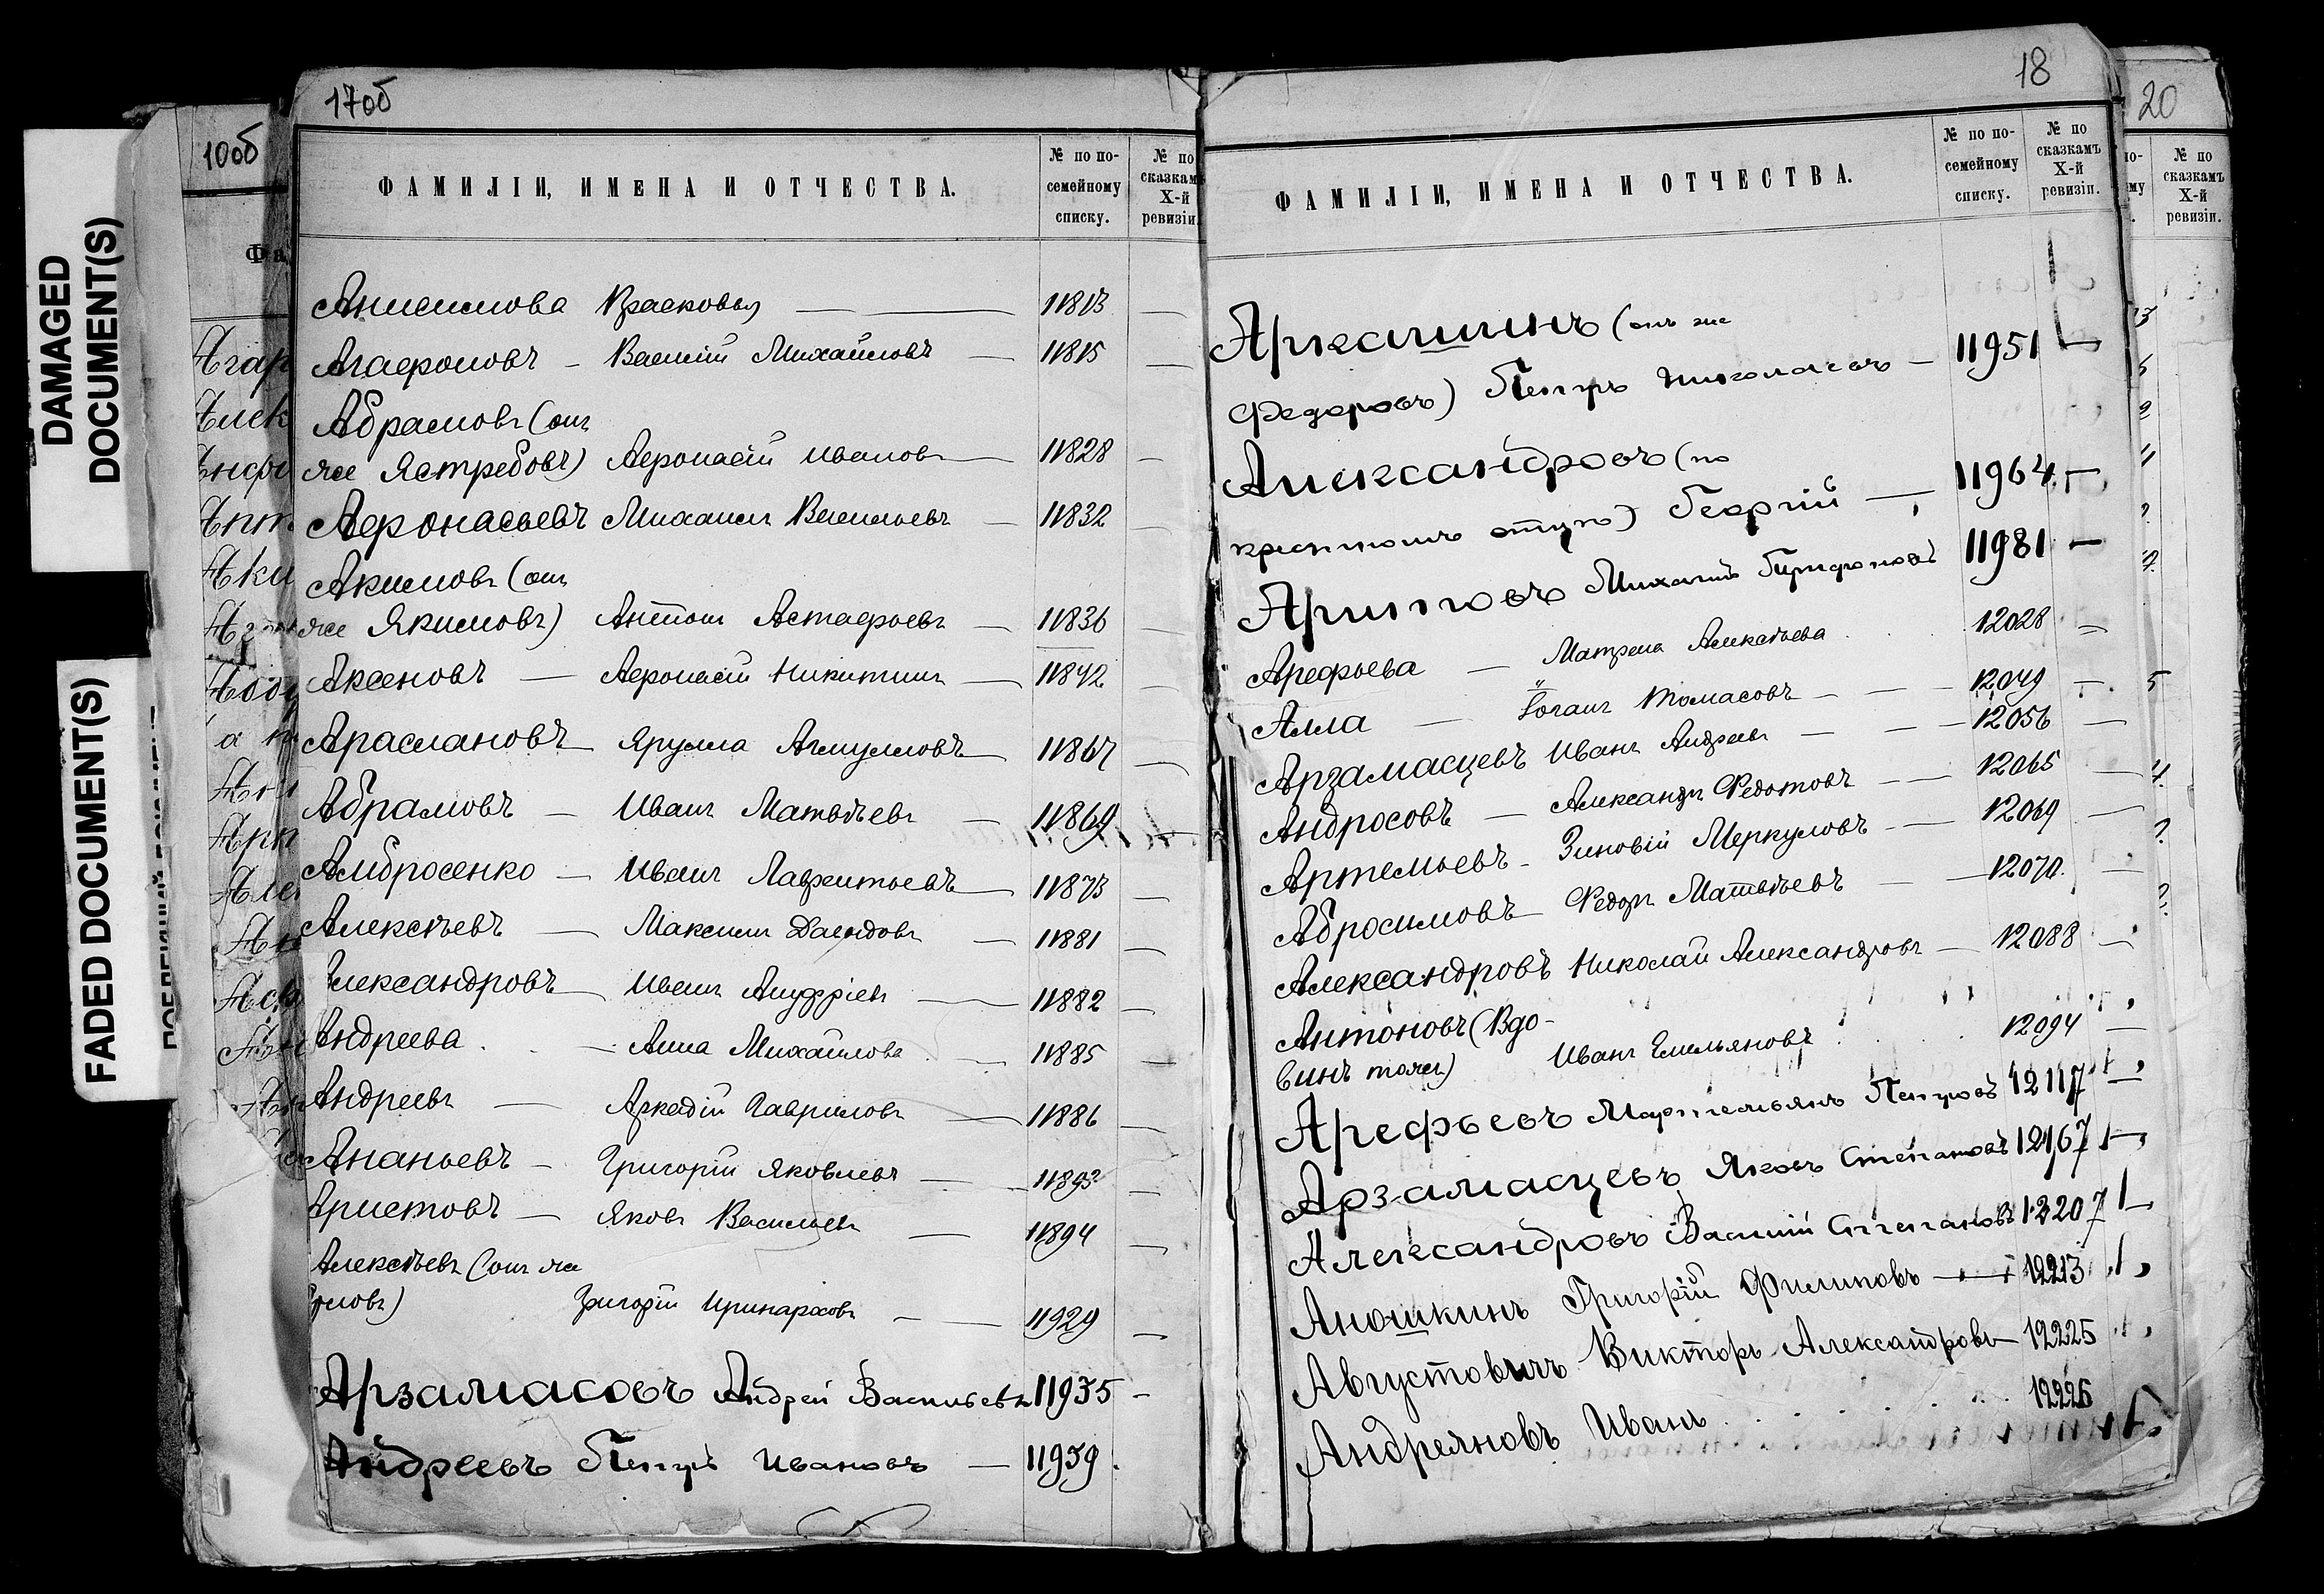 DAMAGED
DOCUMENT(S)
FADED DOCUMENT(S)
10об
17об
ФАМИЛІИ, ИМЕНА И ОТЧЕСТВА.
№ по по-
семейному
списку.
№ по
сказкам
X-й
ревизіи
Анисимова Прасковья 11813
Агафоновъ - Василій Михайловъ 11815
Абрамовъ (онъ
же Ястребовъ) Афонасій Ивановъ 11828
Афонасьевъ Михаилъ Васильевъ 11832
Акимовъ (онъ
же Якимовъ) Антонъ Астафьевъ 11836
Аксеновъ — Афонасій Никитинъ 11842
Араслановъ Ярулла 11867
Абрамовъ — Иванъ Матвѣевъ 11869
Амбросенко — Иванъ Лаврентьевъ 11873
Алексѣевъ — Максимъ Давыдовъ 11881
Александровъ Иванъ 11882
Андреева Анна Михайлова 11885
Андреевъ — Аркадій Гавриловъ 11886
Ананьевъ — Григорій Яковлевъ 11893
Аристовъ — Яковъ Васильевъ 11894
Алексѣевъ (онъ же
Григорій Иринарховъ 11929
Арзамасовъ Андрей Васильевъ 11935 -
Андреевъ Петръ Ивановъ — 11939
18
ФАМИЛІИ, ИМЕНА И ОТЧЕСТВА.
№ по по-
семейному
списку.
№ по
сказкамъ
X-й
ревизіи.
Аркашинъ (онъ же
Федоровъ) Петръ Николаевъ — 11951
Александровъ (по
крестному отцу) Георгій — 11964
Михаилъ 11981 —
Арефьева — Матрена Алексѣева 12028
Алла — Іоганъ Томасовъ 12049
Арзамасцевъ Иванъ Андреевъ 12056
Андросовъ — Александръ Федотовъ 12065
Артемьевъ Зиновій Меркуловъ 12069
Абросимовъ Федоръ Матвѣевъ 12070
Александровъ Николай Александровъ 12088
Антоновъ (Вдо-
винъ тожъ) Иванъ Емельяновъ 12094
Арефьевъ Мартемьянъ Петровъ 12117
Арзамасцевъ Яковъ Степановъ 12167
Александровъ Василій Степановъ 12207
Аношкинъ Григорій Филиповъ 12213
Августовичъ Викторъ Александровъ 12225
Андреяновъ Иванъ 12226
20
№ по
сказкамъ
X-й
ревизіи.